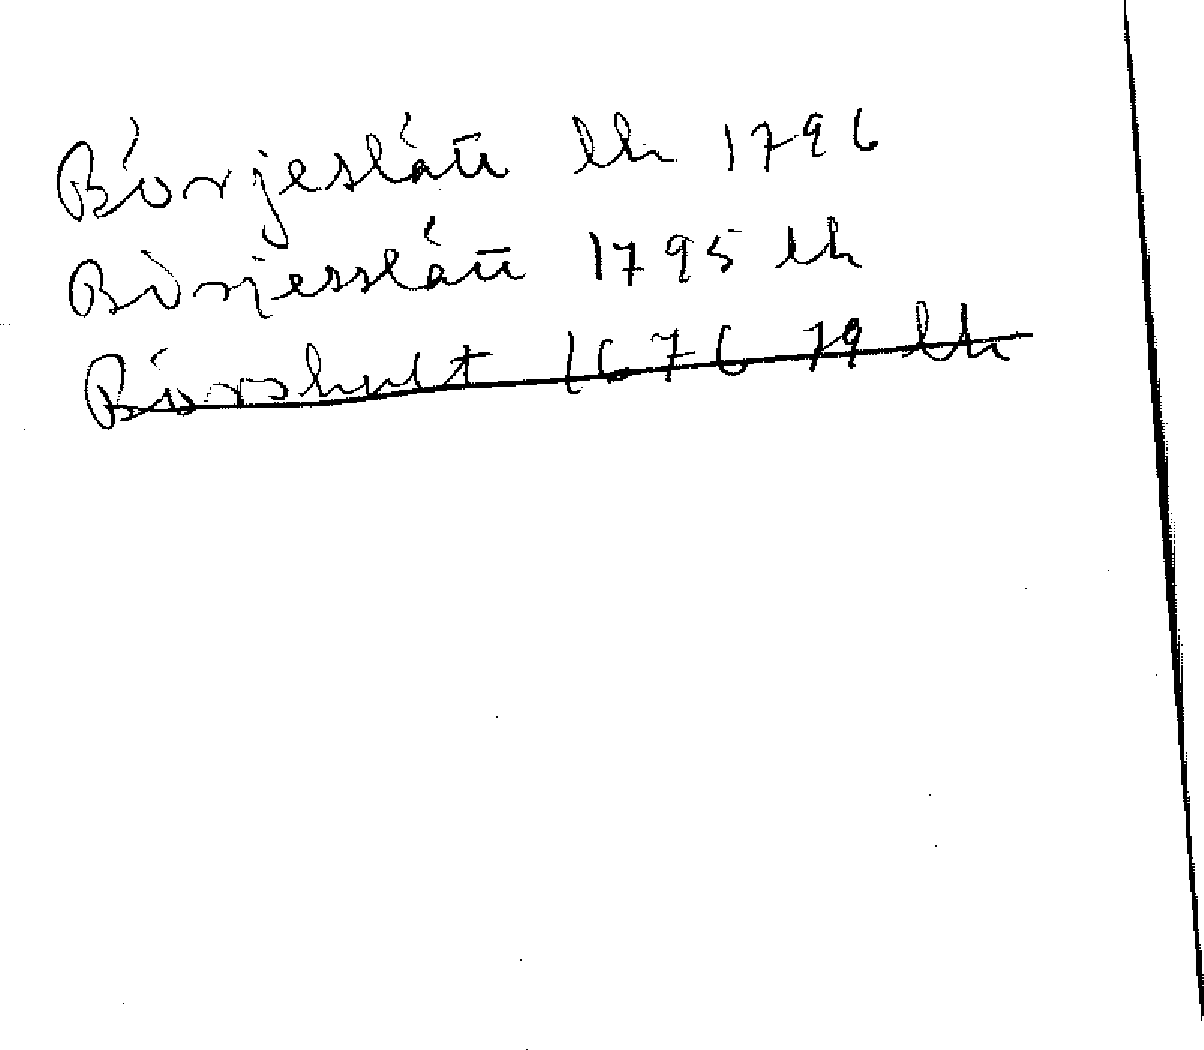 Börjeslätt lh 1796
Börjesslätt 1795 lh
Börshult 1676 79 lh